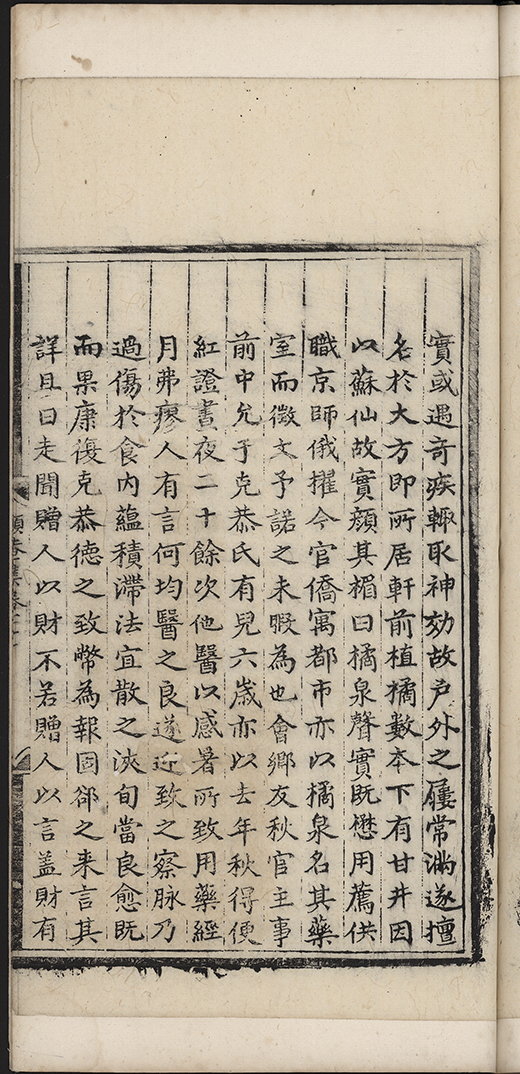 實或遇奇疾輙取神効故戶外之屨常滿遂擅
名於大方即所居軒前植橘數本下有甘井因
以蘇仙故實顏其楣曰橘泉聲實既懋用薦供
職京師俄擢今官僑寓都市亦以橘泉名其藥
室而徵文予諾之未暇為也會鄉友秋官主事
前中允于克恭氏有兒六歲亦以去年秋得便
紅證晝夜二十餘次他醫以感暑所致用藥經
月弗瘳人有言何均醫之良遂迎致之察脉乃
過傷於食內蘊積滯法宜散之浹旬當良愈既
而果康復克恭德之致幣為報固郤之来言其
詳且曰走聞贈人以財不若贈人以言盖財有
頤菴集卷